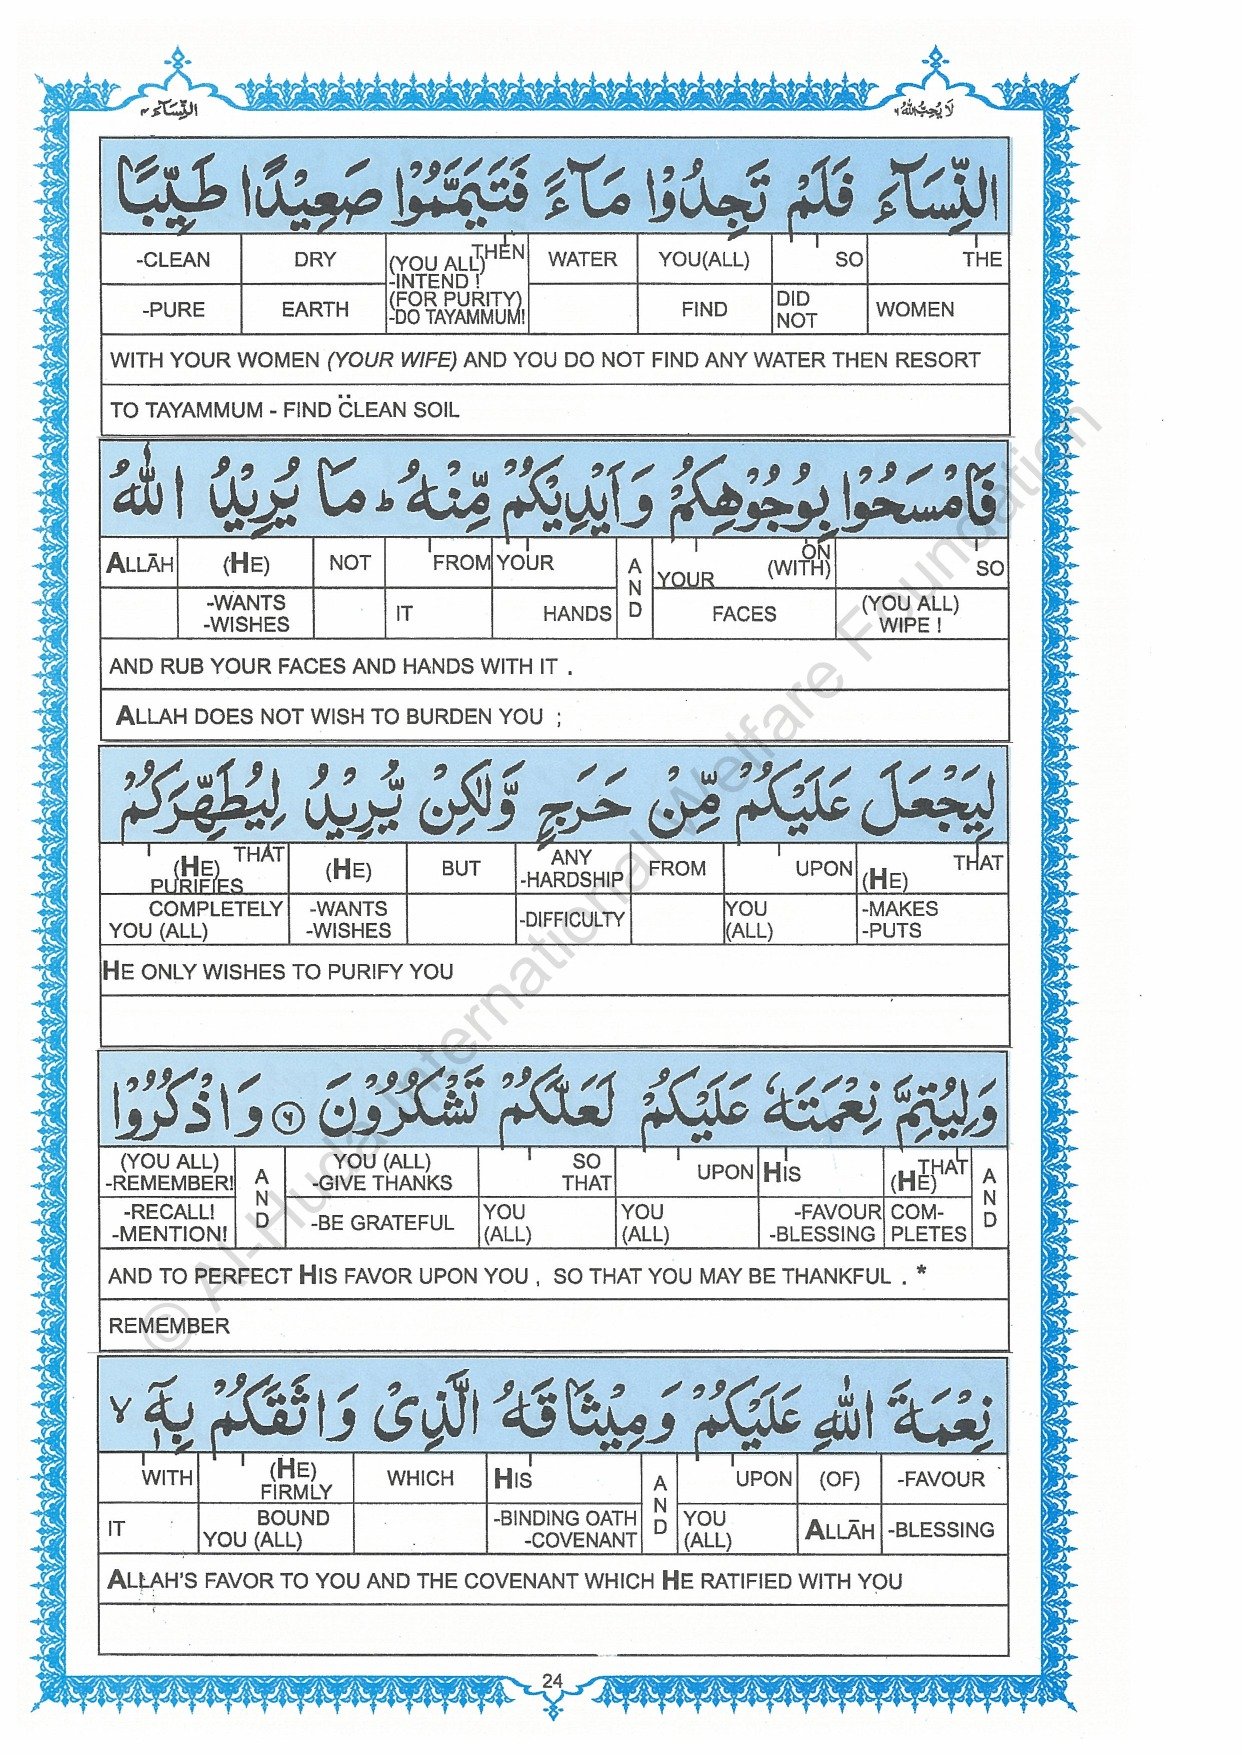 النِّسَآء ٤
لَا يُحِبُّ اللهُ ٦
النِّسَآءَ فَلَمْ تَجِدُوْا مَآءً فَتَيَمَّمُوْا صَعِيْدًا طَيِّبًا
-CLEAN DRY (YOU ALL) THEN WATER YOU(ALL) SO THE
-PURE EARTH -INTEND ! (FOR PURITY) -DO TAYAMMUM! FIND DID NOT WOMEN
WITH YOUR WOMEN (YOUR WIFE) AND YOU DO NOT FIND ANY WATER THEN RESORT
TO TAYAMMUM - FIND CLEAN SOIL
فَامْسَحُوْا بِوُجُوْهِكُمْ وَاَيْدِيْكُمْ مِّنْهُ ؕ مَا يُرِيْدُ اللّٰهُ
ALLĀH (HE) NOT FROM YOUR AND YOUR ON (WITH) SO
-WANTS -WISHES IT HANDS FACES (YOU ALL) WIPE !
AND RUB YOUR FACES AND HANDS WITH IT .
ALLAH DOES NOT WISH TO BURDEN YOU ;
لِيَجْعَلَ عَلَيْكُمْ مِّنْ حَرَجٍ وَّلٰكِنْ يُّرِيْدُ لِيُطَهِّرَكُمْ
THAT (HE) PURIFIES (HE) BUT ANY -HARDSHIP FROM UPON THAT (HE)
COMPLETELY YOU (ALL) -WANTS -WISHES -DIFFICULTY YOU (ALL) -MAKES -PUTS
HE ONLY WISHES TO PURIFY YOU
وَلِيُتِمَّ نِعْمَتَهٗ عَلَيْكُمْ لَعَلَّكُمْ تَشْكُرُوْنَ ٦ وَاذْكُرُوْا
(YOU ALL) -REMEMBER! AND YOU (ALL) -GIVE THANKS SO THAT UPON HIS THAT (HE) AND
-RECALL! -MENTION! -BE GRATEFUL YOU (ALL) YOU (ALL) -FAVOUR -BLESSING COM- PLETES
AND TO PERFECT HIS FAVOR UPON YOU , SO THAT YOU MAY BE THANKFUL . *
REMEMBER
نِعْمَةَ اللّٰهِ عَلَيْكُمْ وَمِيْثَاقَهُ الَّذِىْ وَاثَقَكُمْ بِهٖۤ ۙ
WITH (HE) FIRMLY WHICH HIS AND UPON (OF) -FAVOUR
IT BOUND YOU (ALL) -BINDING OATH -COVENANT YOU (ALL) ALLĀH -BLESSING
ALLAH'S FAVOR TO YOU AND THE COVENANT WHICH HE RATIFIED WITH YOU
24
© Al-Huda International Welfare Foundation